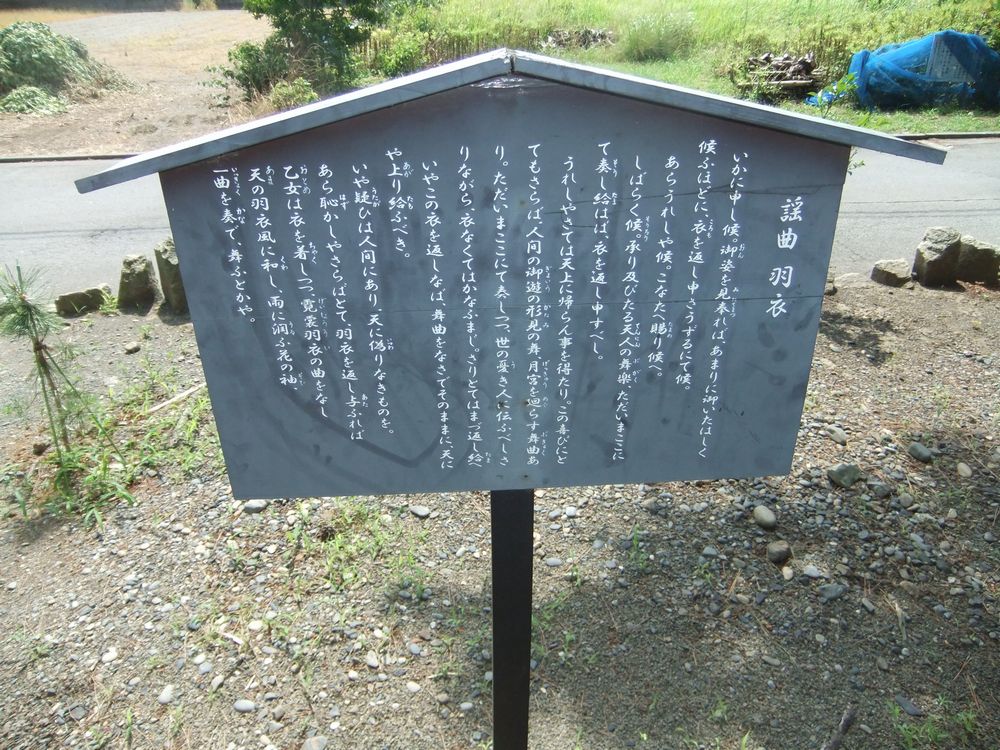 謡曲 羽衣
いかに申し候。御姿を見奉れば、あまりに御いたはしく
候ふほどに、衣を返し申さうずるにて候。
あらうれしや候。こなたへ賜り候へ。
しばらく候。承り及びたる天人の舞楽、ただいまここに
て奏し給はば、衣を返し申すべし。
うれしやさては天上に帰らん事を得たり。この喜びにと
てもさらば、人間の御遊の形見の舞、月宮を廻らす舞曲あ
り。ただいまここにて奏しつつ、世の憂き人に伝ふべしさ
りながら、衣なくてはかなふまじ。さりとてはまづ返し給へ
いやこの衣を返しなば、舞曲をなさでそのままに、天に
や上り給ふべき。
いや疑ひは人間にあり、天に偽りなきものを。
あら恥かしやさらばとて、羽衣を返し与ふれば
乙女は衣を着しつつ、霓裳羽衣の曲をなし
天の羽衣風に和し、雨に潤ふ花の袖、
一曲を奏で、舞ふとかや。